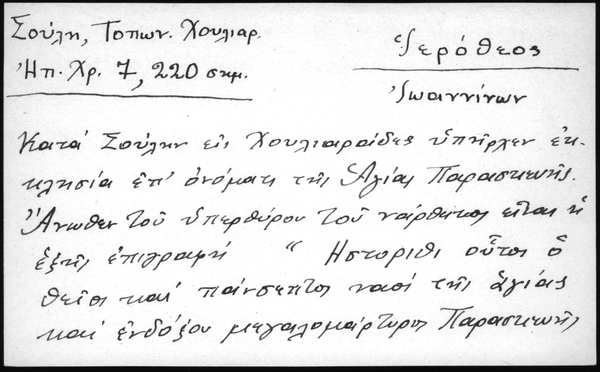 Σούλη, Τοπων. Χουλιαρ.
Ἠπ. Χρ. 7, 220 σημ.
Ἱερόθεος
Ἰωαννίνων
Κατά Σούλην εἰς Χουλιαράδες ὑπῆρχεν ἐκ-
κλησία ἐπ' ὀνόματι τῆς Ἁγίας Παρασκευῆς.
Ἄνωθεν τοῦ ὑπερθύρου τοῦ νάρθηκος εἶναι ἡ
ἑξῆς ἐπιγραφή " Ηστοριθι οὗτος ὁ
θεῖος καί πάνσεπτος ναός τῆς ἁγίας
καί ἐνδόξου μεγαλομάρτυρος Παρασκευῆς